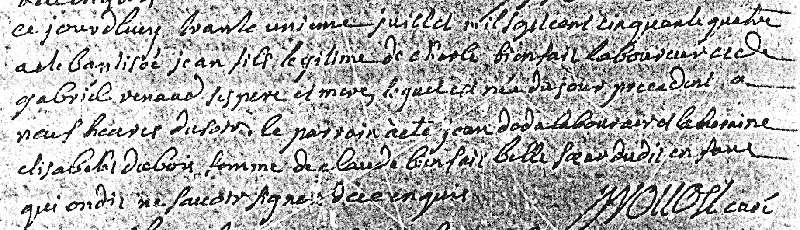 ce jourdhuy trante unieme juillet mil sept cent cinquante quatre
a ete baptisée jean fils legitime de charle bienfait laboureur et de
gabriel renaud ses pere et mere, lequel est née du jour precedent a
neuf heures du soir. le parrain a eté jean doda laboureur et la
elisabeth femme de claude bienfait belle sœur dudit enfant
qui ont dit ne savoir signer de ce enquis curé